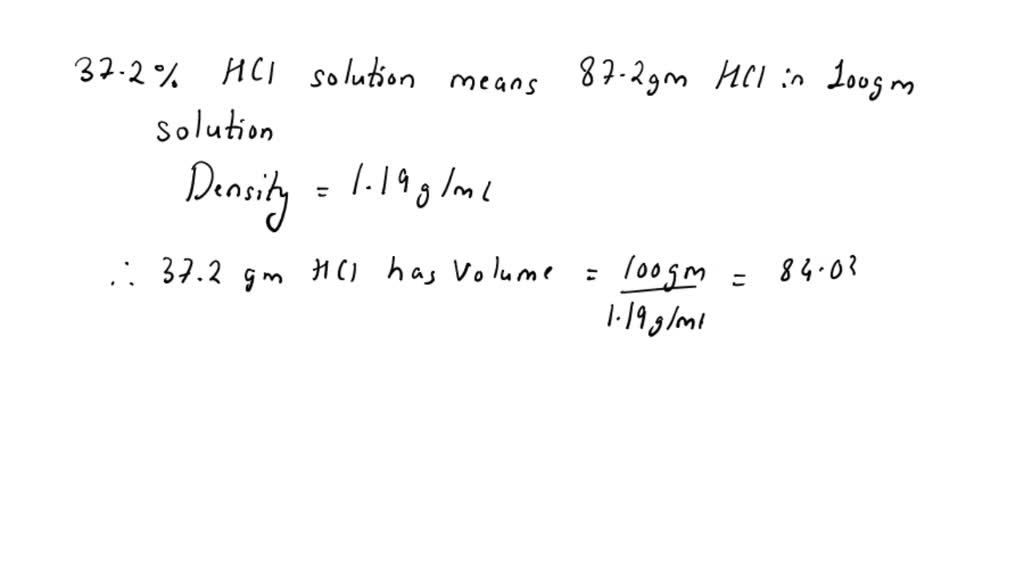 37.2% HCl solution means 87.2gm HCl in 100gm
solution
Density = 1.19g/ml
∴ 37.2 gm HCl has volume = 100gm = 84.03
1.19g/ml